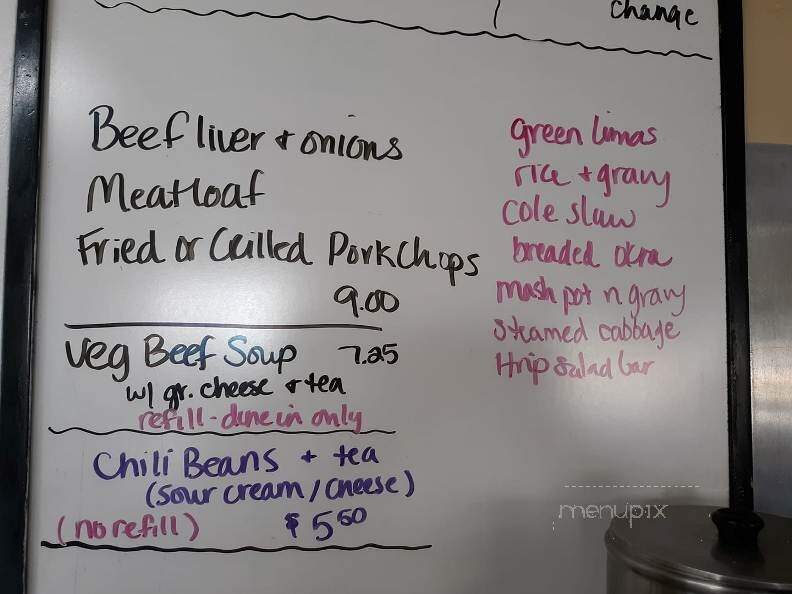 Change
Beef liver + onions
Meatloaf
Fried or Grilled Pork Chops
9.00
Veg Beef Soup 7.25
w/ gr. cheese + tea
refill - dine in only
Chili Beans + tea
(sour cream / cheese)
(no refill) $550
green limas
rice + gravy
cole slaw
breaded okra
mash pot n gravy
steamed cabbage
1 trip salad bar
menupix